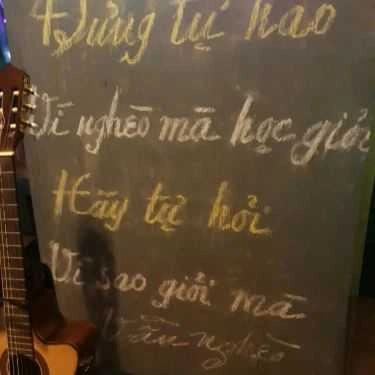 Đừng tự hào
Vì nghèo mà học giỏi
Hãy tự hỏi
Vì sao giỏi mà
vẫn nghèo